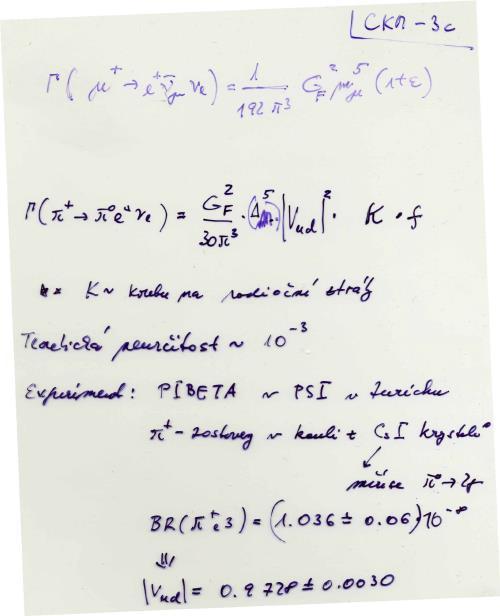 CKM - 3c
Γ(μ⁺ → e⁺ ν̄μ νe) = 1/192π³ G_F² m_μ⁵ (1+ε)
Γ(π⁺ → π⁰ e⁺ νe) = G_F²/30π³ · (Δm)⁵ |Vud|² · K · f
K ~ na radiační ztráty
Teoretická neurčitost ~ 10⁻³
Experiment: PIBETA ~ PSI v Zurichu
π⁺ - v kouli z CsI krystalů
π⁰ → 2γ
BR(π⁺e3) = (1.036 ± 0.06) 10⁻⁸
⇓
|Vud| = 0.9728 ± 0.0030